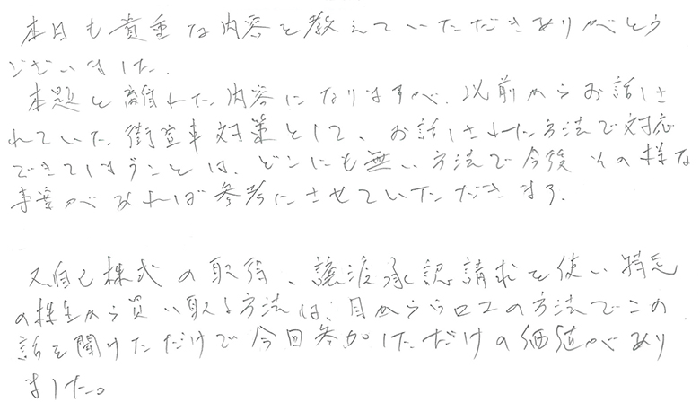 本日も貴重な内容を教えていただきありがとう
ございました。
本題と離れた内容になりますが、以前からお話しさ
れていた街宣車対策として、お話しされた方法で対応
できてしまうことは、どこにも無い方法で今後その様な
事業があれば参考にさせていただきます。
又自己株式の取得、譲渡承認請求を使い特定
の株主から買い取る方法は、目からウロコの方法でこの
話を聞けただけで今回参加しただけの価値があり
ました。